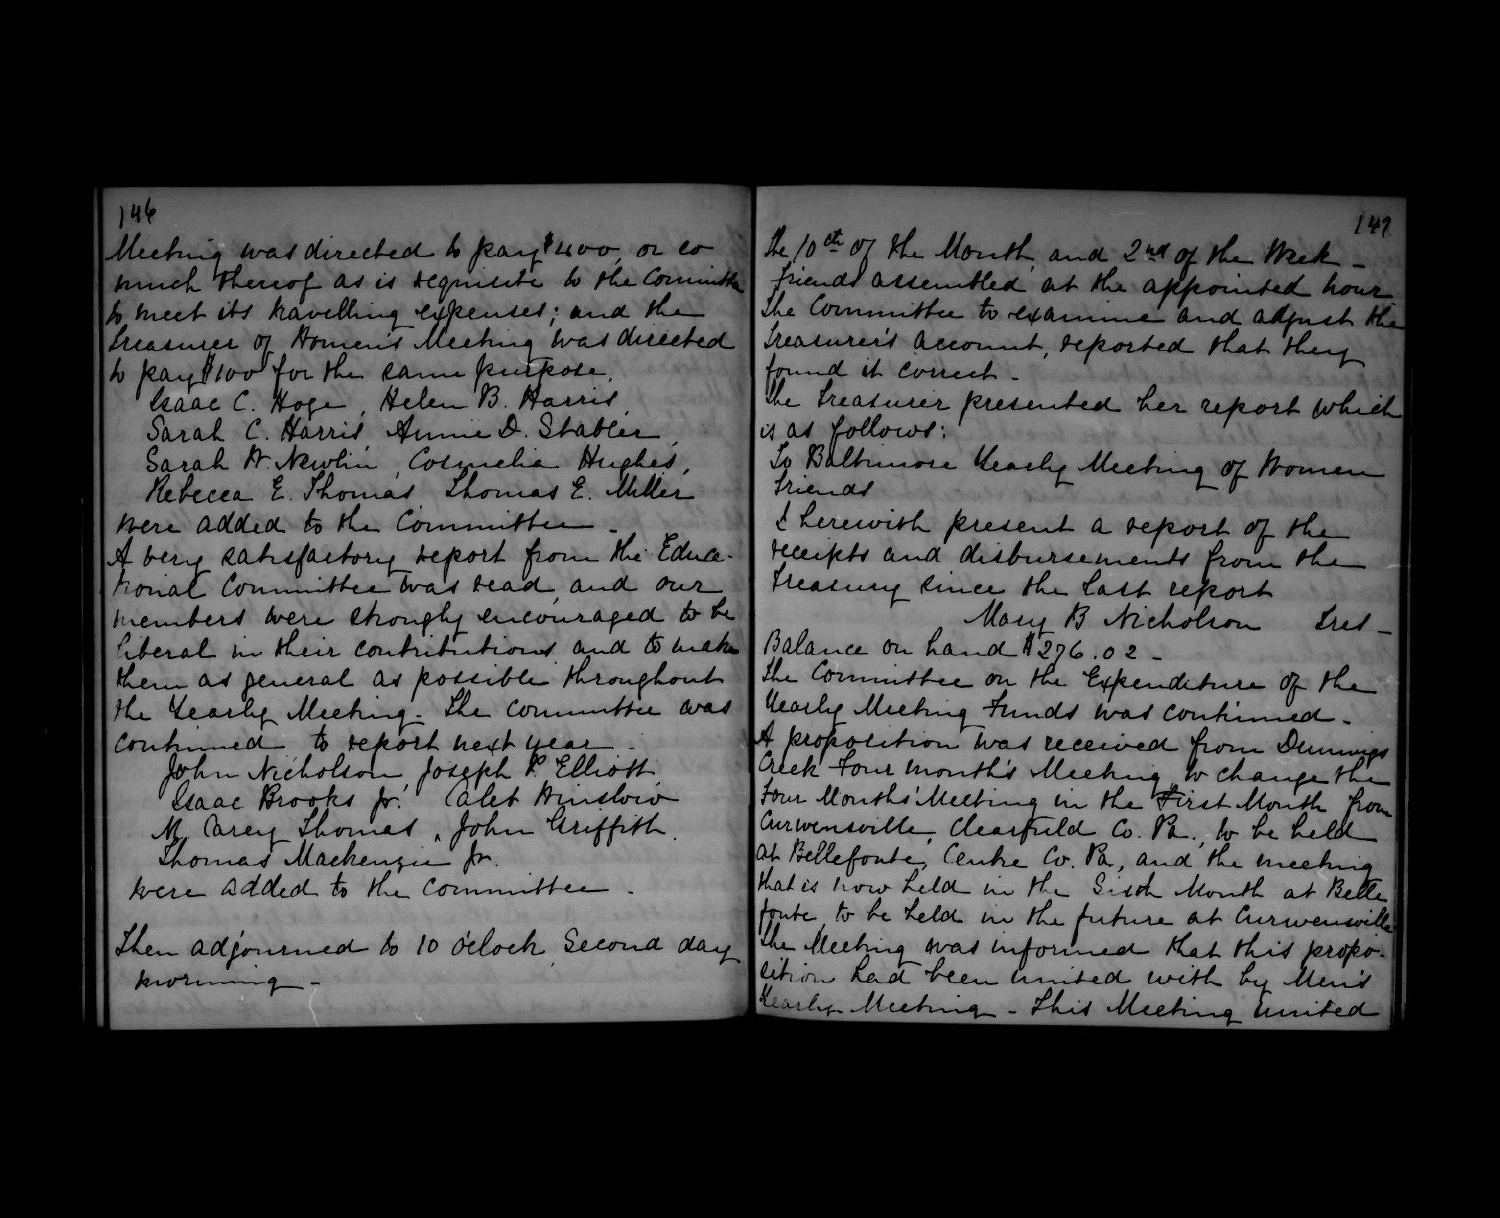 146
Meeting was directed to pay $400, or so
much thereof as is requisite to the Committee
to meet its travelling expenses; and the
Treasurer of Women's Meeting was directed
to pay $100 for the same purpose.
Isaac C. Hoge, Helen B. Harris,
Sarah C. Harris, Annie D. Stabler,
Sarah W. Newlin, Cornelia Hughes,
Rebecca E. Thomas, Thomas E. Miller
were added to the Committee -
A very satisfactory report from the Educa-
tional Committee was read, and our
members were strongly encouraged to be
liberal in their contributions and to make
them as general as possible throughout
the Yearly Meeting. The committee was
continued to report next year -
John Nicholson, Joseph P. Elliott,
Isaac Brooks Jr. Caleb Winslow
M. Carey Thomas, John Griffith.
Thomas Mackenzie Jr.
were added to the committee -
Then adjourned to 10 o'clock, Second day
morning -
147
The 10th of the Month, and 2nd of the Week -
Friends assembled at the appointed hour
The Committee to examine and adjust the
Treasurer's account, reported that they
found it correct -
The Treasurer presented her report which
is as follows:
To Baltimore Yearly Meeting of Women
Friends
I herewith present a report of the
receipts and disbursements from the
treasury since the last report
Mary B Nicholson Tres -
Balance on hand $276.02 -
The Committee on the Expenditure of the
Yearly Meeting Funds was continued -
A proposition was received from Dunnings
Creek Four month's Meeting, to change the
Four Months' Meeting in the First Month from
Curwensville, Clearfield Co. Pa., to be held
at Bellefonte, Centre Co. Pa, and the meeting
that is now held in the Sixth Month at Belle
fonte, to be held in the future at Curwensville
The Meeting was informed that this propo-
sition had been united with by Men's
Yearly Meeting - This Meeting united